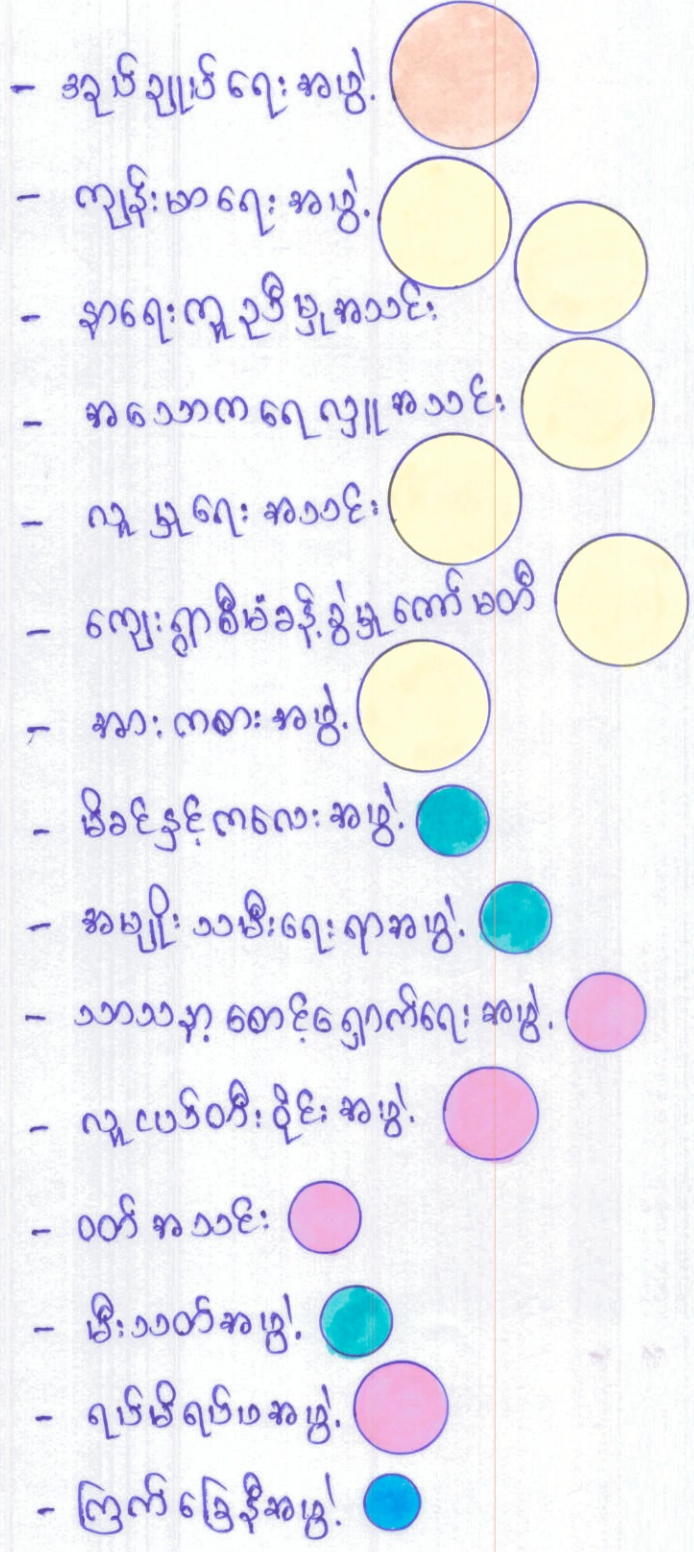 - အုပ်ချုပ်ရေးအဖွဲ့
- ကျန်းမာရေးအဖွဲ့
- နာရေးကူညီမှုအသင်း
- အသောကရေလှူအသင်း
- လူမှုရေးအသင်း
- ကျေးရွာစီမံခန့်ခွဲမှုကော်မတီ
- အားကစားအဖွဲ့
- မိခင်နှင့်ကလေးအဖွဲ့
- အမျိုးသမီးရေးရာအဖွဲ့
- သာသနာ့စောင့်ရှောက်ရေးအဖွဲ့
- လူငယ်ဝတီးဝိုင်းအဖွဲ့
- ဝတ်အသင်း
- မီးသတ်အဖွဲ့
- ရပ်မိရပ်ဖအဖွဲ့
- ကြက်ခြေနီအဖွဲ့